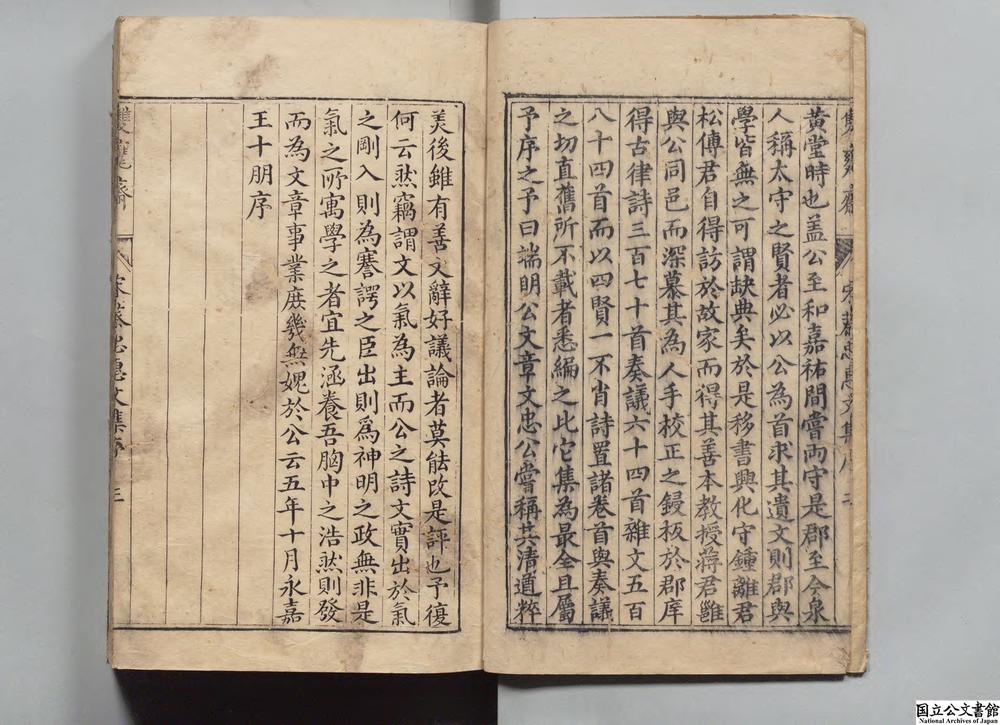 黃堂時也盖公至和嘉祐間嘗兩守是郡至今泉
人稱太守之賢者必以公為首求其遺文則郡與
學皆無之可謂缺典矣於是移書興化守鍾離君
松傅君自得訪於故家而得其善本教授蔣君雝
與公同邑而深慕其為人手校正之鋟板於郡庠
得古律詩三百七十首奏議六十四首雜文五百
八十四首而以四賢一不肖詩置諸卷首與奏議
之切直舊所不載者悉編之此它集為最全且屬
予序之予曰端明公文章文忠公嘗稱其清遒粹
美後雖有善文辭好議論者莫能改是評也予復
何云然竊謂文以氣為主而公之詩文實出於氣
之剛入則為謇諤之臣出則爲神明之政無非是
氣之所寓學之者宜先涵養吾胸中之浩然則發
而為文章事業庶幾無媿於公云五年十月永嘉
王十朋序
雙甕齋
宋蔡忠惠文集序
三
国立公文書館
National Archives of Japan